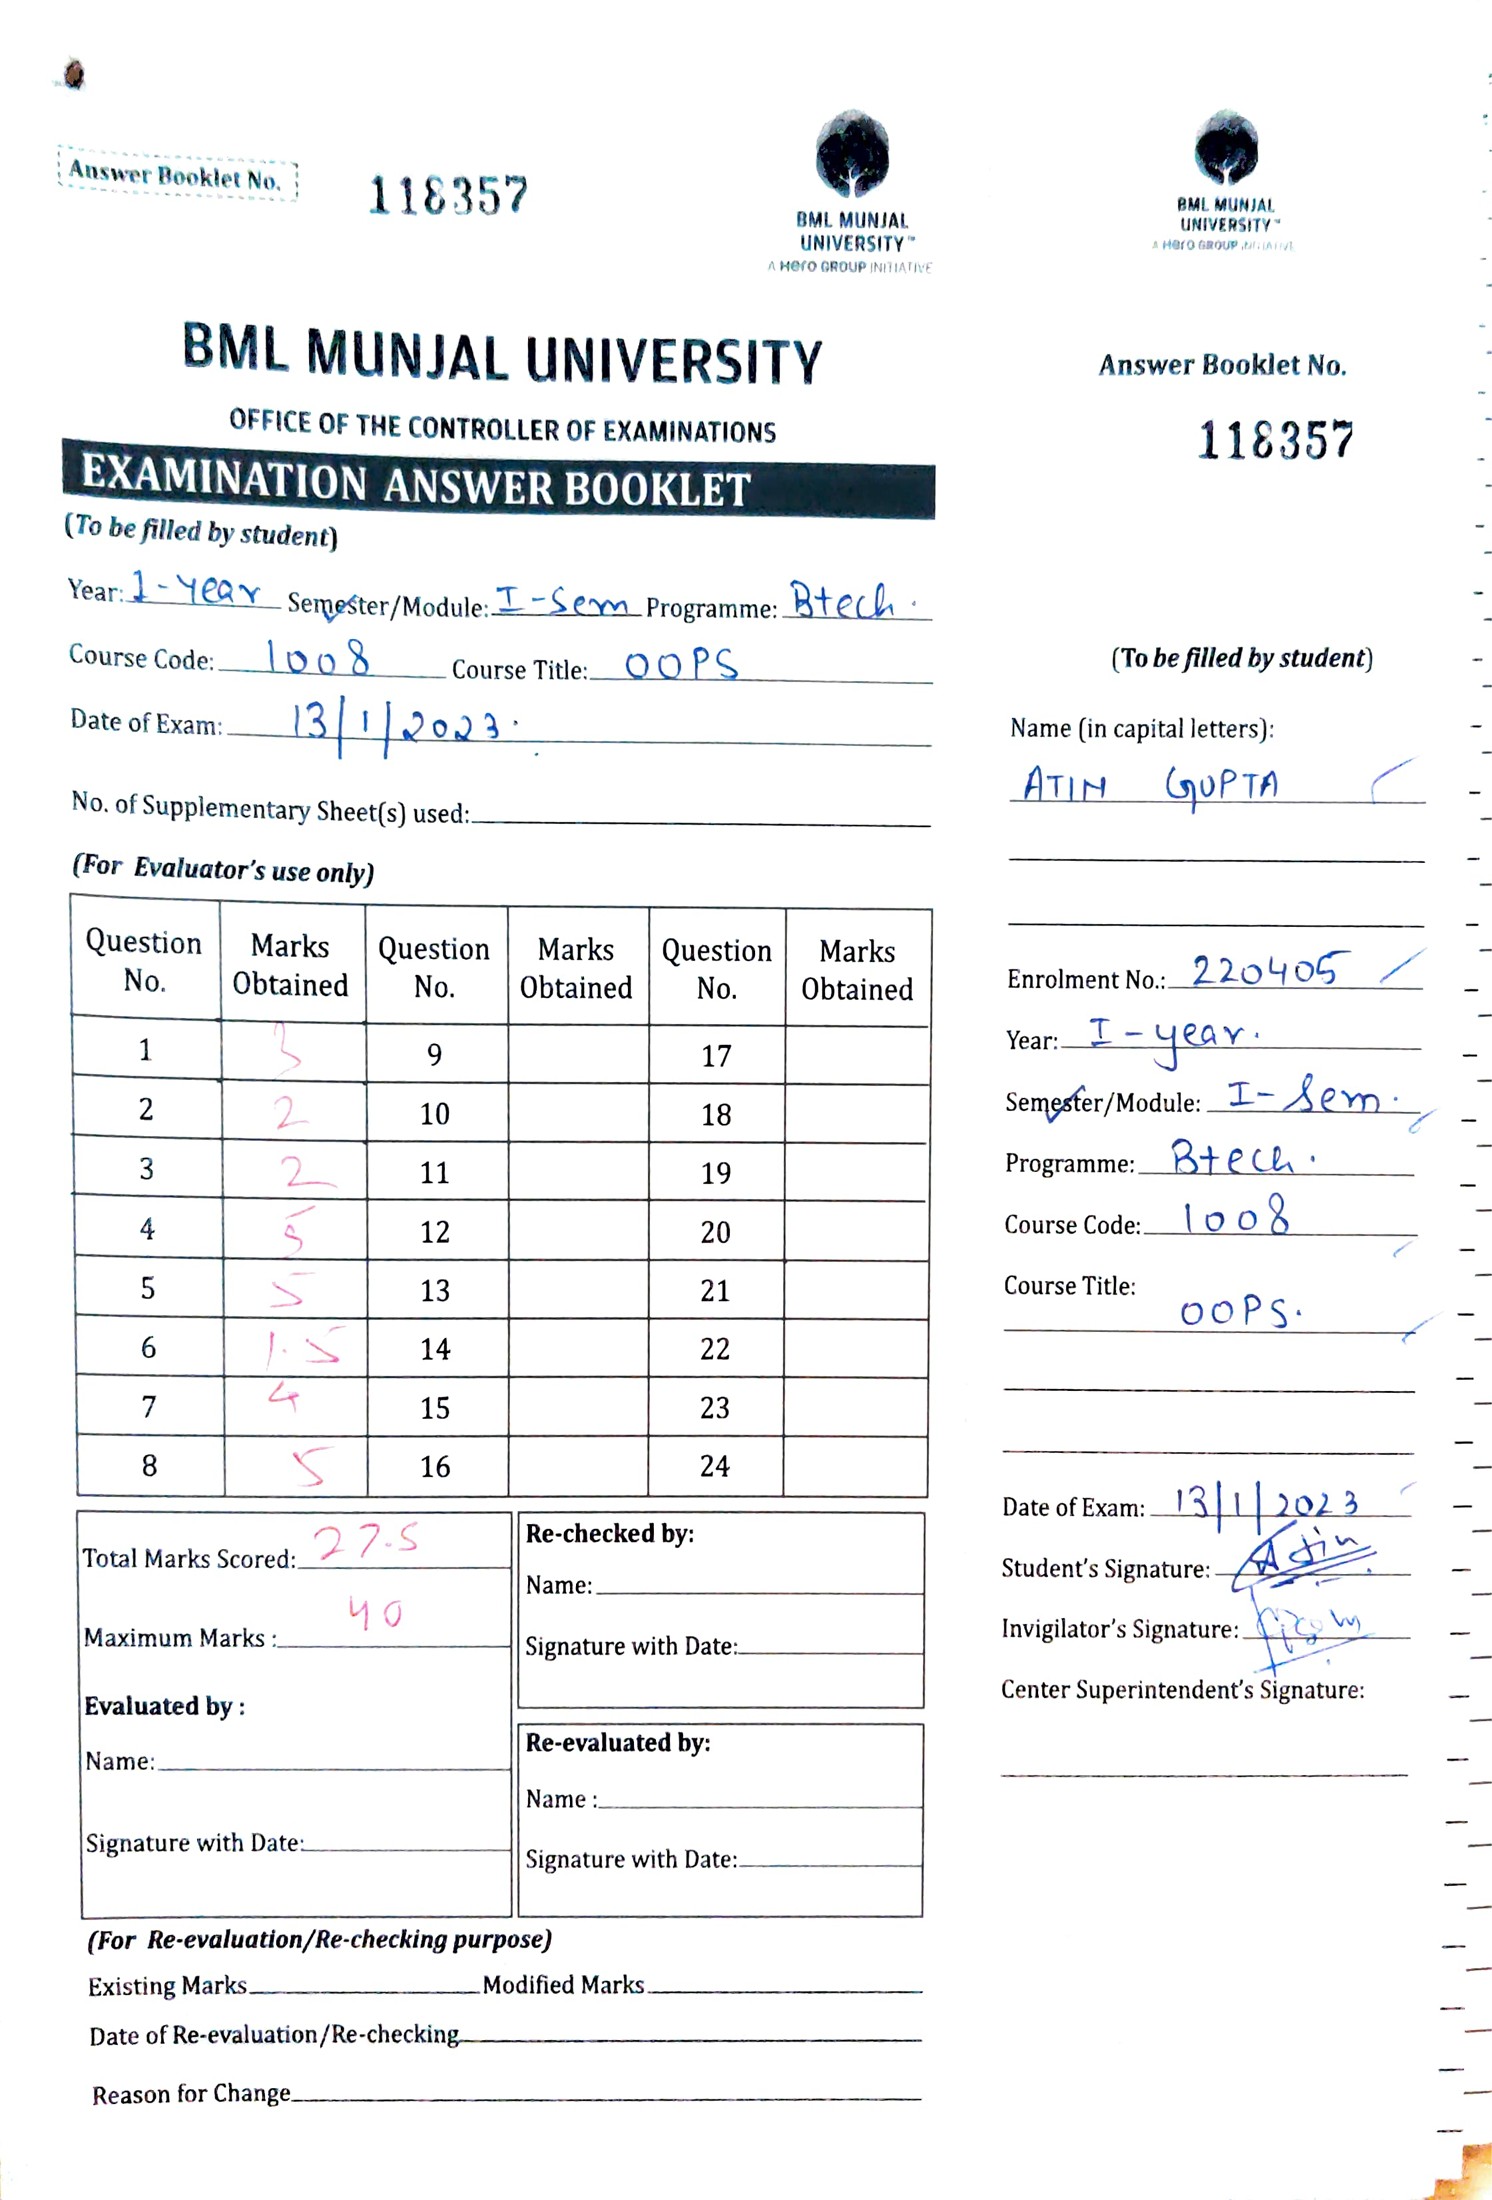 Answer Booklet No. 118357
BML MUNJAL
UNIVERSITY™
A Hero GROUP INITIATIVE
BML MUNJAL UNIVERSITY
OFFICE OF THE CONTROLLER OF EXAMINATIONS
EXAMINATION ANSWER BOOKLET
(To be filled by student)
Year: I-Year Semester/Module: I-Sem Programme: Btech.
Course Code: 1008 Course Title: OOPS
Date of Exam: 13/1/2023.
No. of Supplementary Sheet(s) used:
(For Evaluator's use only)
Question No. Marks Obtained Question No. Marks Obtained Question No. Marks Obtained
1 3 9 17
2 2 10 18
3 2 11 19
4 5 12 20
5 5 13 21
6 1.5 14 22
7 4 15 23
8 5 16 24
Total Marks Scored: 27.5
Maximum Marks : 40
Evaluated by :
Name:
Signature with Date:
Re-checked by:
Name:
Signature with Date:
Re-evaluated by:
Name :
Signature with Date:
(For Re-evaluation/Re-checking purpose)
Existing Marks Modified Marks
Date of Re-evaluation/Re-checking
Reason for Change
BML MUNJAL
UNIVERSITY™
A Hero GROUP INITIATIVE
Answer Booklet No.
118357
(To be filled by student)
Name (in capital letters):
ATIN GUPTA
Enrolment No.: 220405
Year: I-year.
Semester/Module: I-Sem.
Programme: Btech.
Course Code: 1008
Course Title:
OOPS.
Date of Exam: 13/1/2023
Student's Signature: Atin
Invigilator's Signature:
Center Superintendent's Signature: